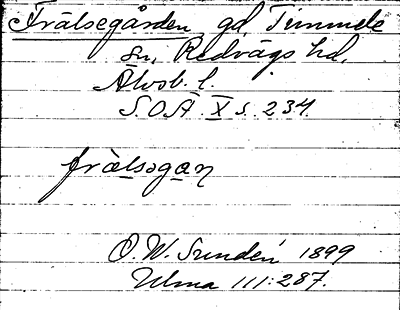 Frälsegården gd, Timmele
sn, Redvägs hd,
Älvsb. l.
S.O.Ä. X s. 234.
frälsəgaɳ
O. W. Sundén 1899
Ulma 111:287.